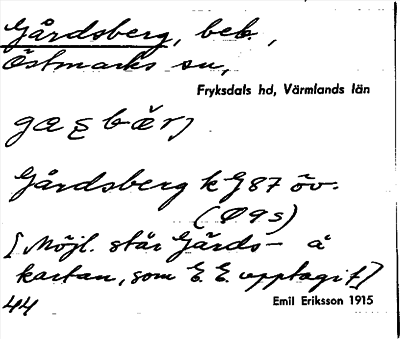 Gårdsberg, beb.,
Östmarks sn,
Fryksdals hd, Värmlands län
Gårdsberg k G87 öv.
(Ö9s)
[Möjl. står Gårds- å
kartan, som E. E. upptagit]
44
Emil Eriksson 1915